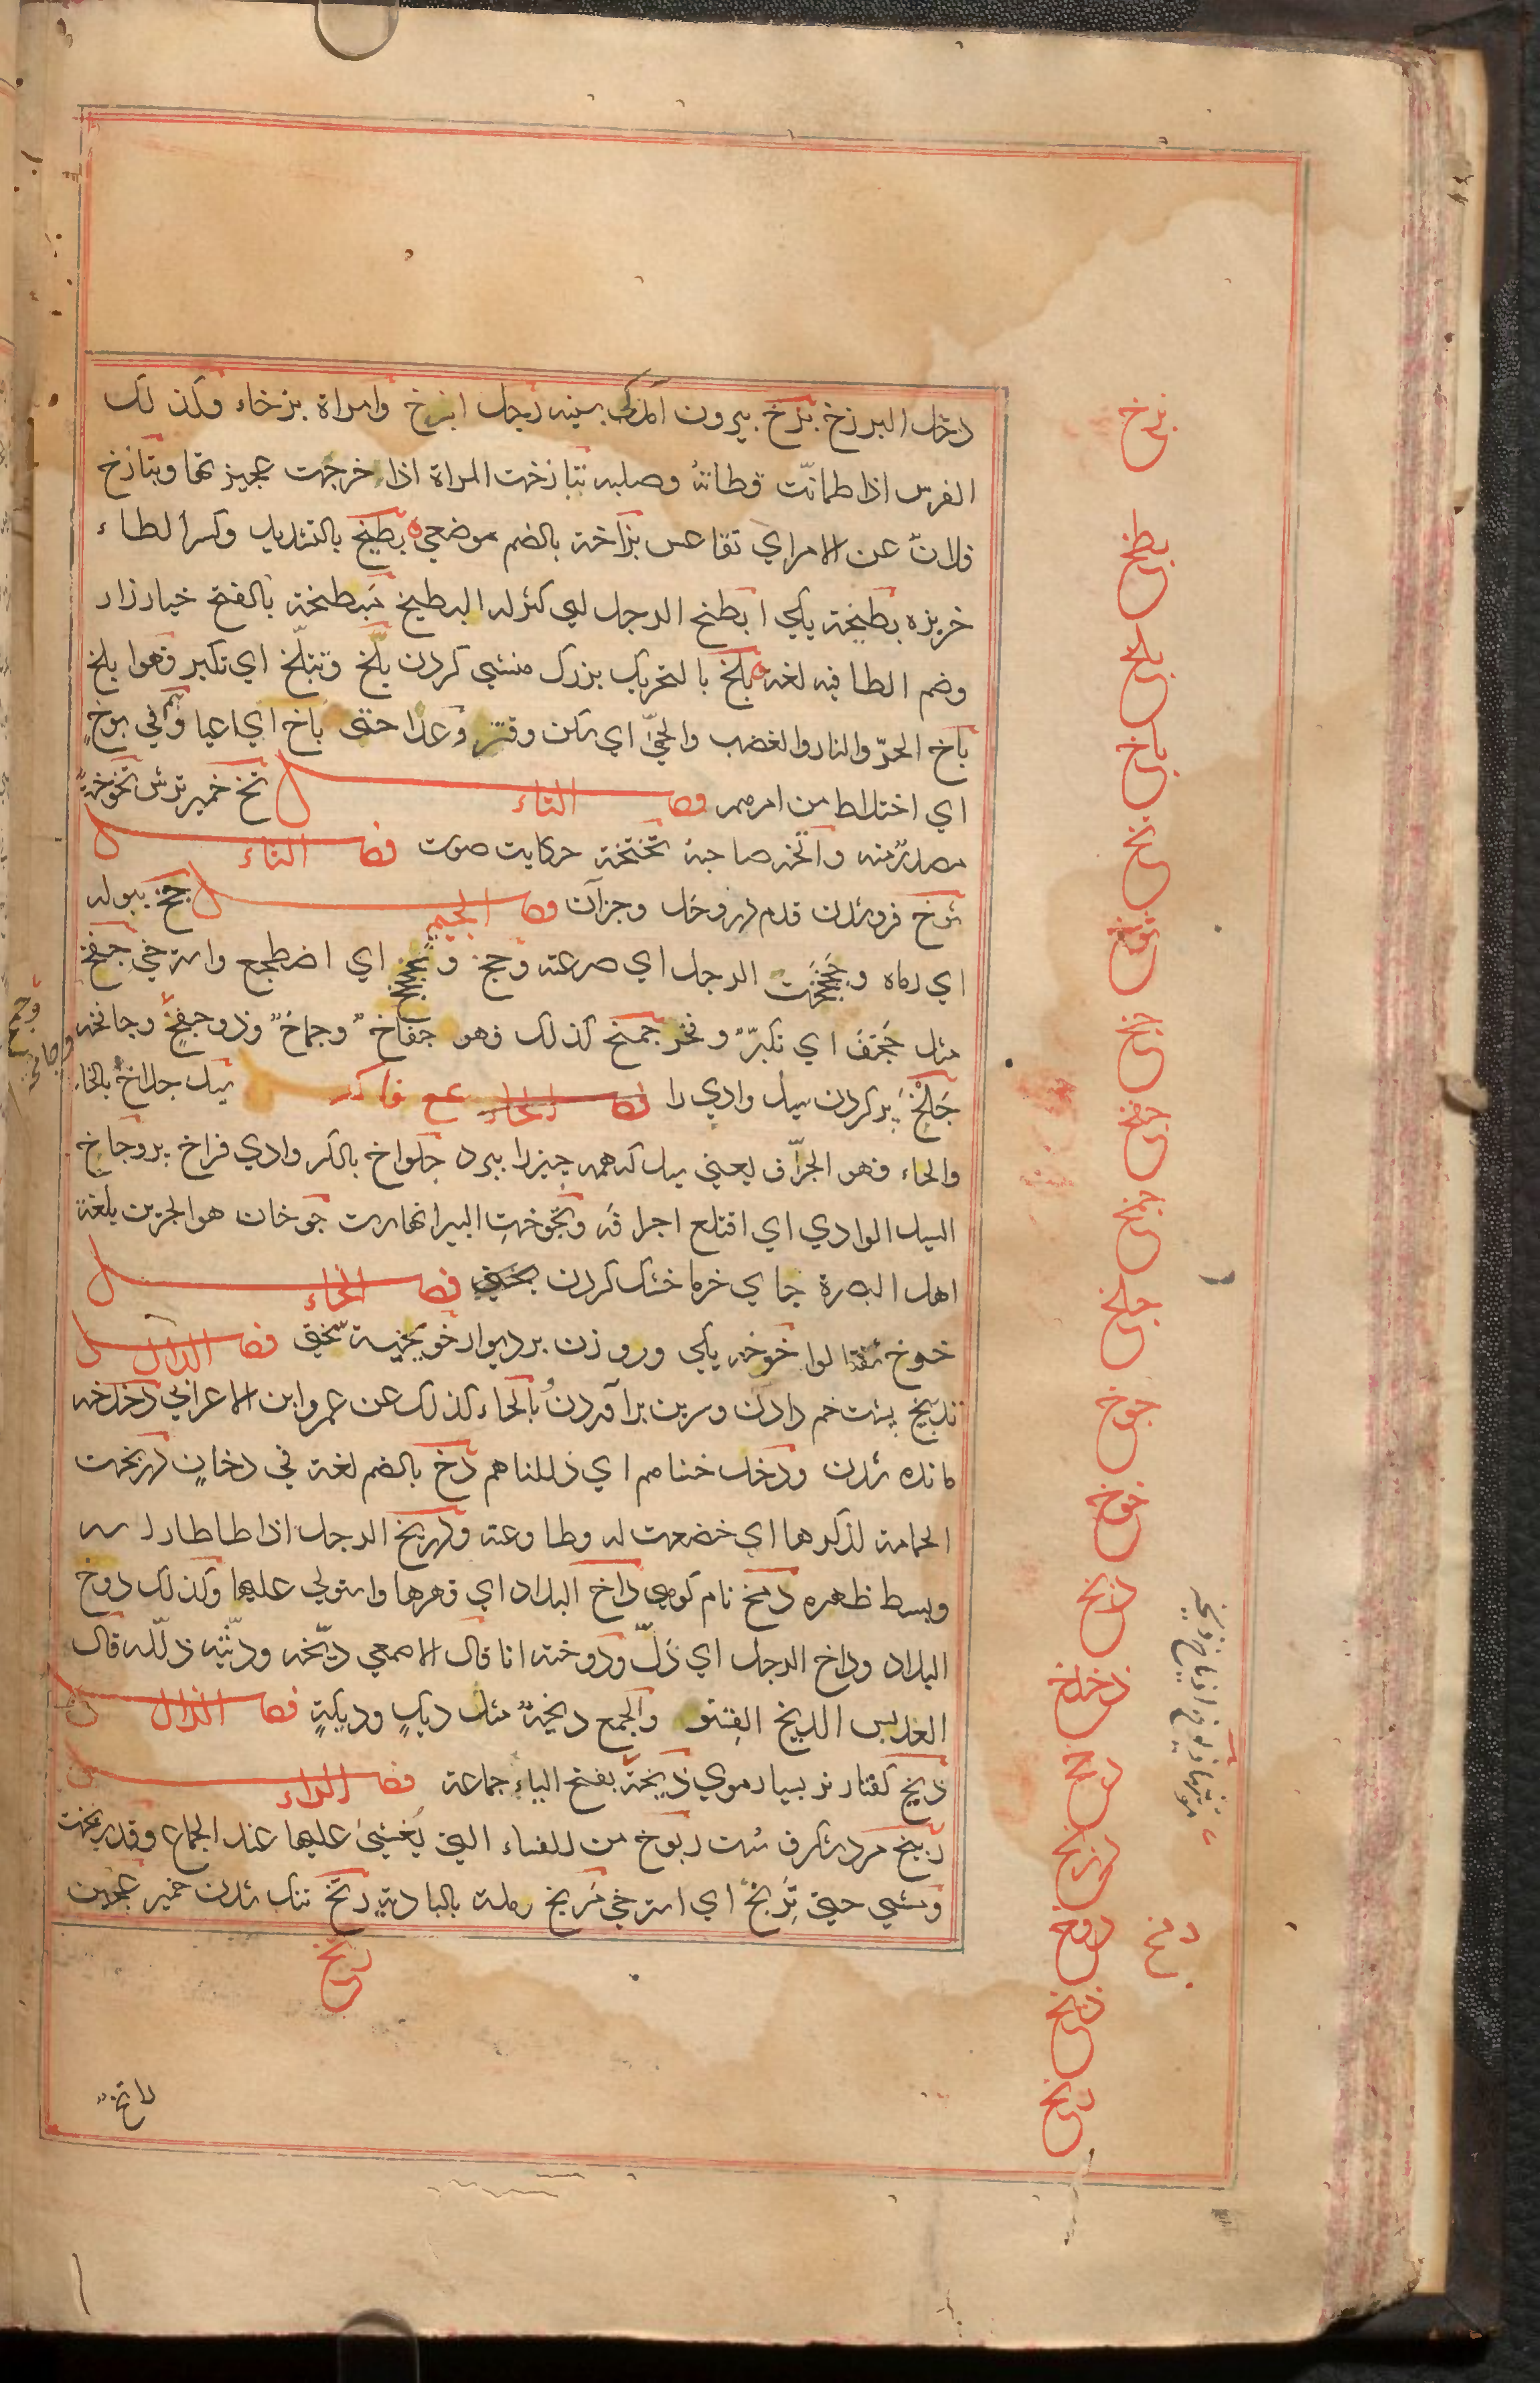 دخل البرزخ بزخ بيرون آمدكى سينه رجل ابزخ وامراة بزخاء وكذلك
الفرس اذا طمانّت قطاته وصلبه تبازخت المراة اذا خرجت عجيزتها وتبازخ
فلان عن الامر اي تقاعس بزاخة بالضم موضعي بطيخ بالتشديد وكسر الطاء
خربزه بطيخة يكي ابطخ الرجل اي كثر له البطيخ مبطخة بالفتح خيارزار
وضم الطا فيه لغة بلخ بالتحريك بزرك منشي كردن بلخ وتبلّخ اي تكبر فهو ابلخ
باخ الحرّ والنار والغضب والحمّى اي سكن وفتر وعدا حتى باخ اي اعيا وهم في بوخ
اي اختلاط من امرهم فصل التاء تخ خمير ترش تخوخة
مصدر منه واتخه صاحبه تختخة حكايت صوت فصل الثاء
ثوخ فروشدن قدم در وحل وجز آن فصل الجيم جخ ببوله
اي رماه وجخجخت الرجل اي صرعته وجخ وتجخجخ اي اضطجع واسترخي جفخ
مثل جخف اي تكبّر وفخر جمخ كذلك فهو جفاخ وجماخ وذو جفخ وجامخه
جلخ پر كردن سيل وادي را فصل الخاء سيل جلاخ بالخاء
والحاء فهو الجرّاف يعني سيل كه همه چيز را ببرد جلواخ بالكسر وادي فراخ پر وجاخ
السيل الوادي اي اقتلع اجرافه وتجوخت البير انهارت جوخان هو الجرين بلغة
اهل البصرة جاي خرما خشك كردن فصل الخاء
خوخ شفتالو خوخه يكي وروزن بر ديوار خويخية سختى فصل الدال
تدبيخ پشت خم دادن وسرين برآوردن وبالحاء كذلك عن عمرو ابن الاعرابي دخدخه
مانده شدن ودخدخناهم اي ذللناهم دخ بالضم لغة في دخان دربخت
الحمامة لذكرها اي خضعت له وطاوعته ودربخ الرجل اذا طاطا راسه
وبسط ظهره دمخ نام كوهي داخ البلاد اي قهرها واستولي عليها وكذلك دوخ
البلاد وداخ الرجل اي ذلّ ودوخته انا قال الاصمعي ديّخه وديّثه ذلّله قال
العدبس الديخ القِنو والجمع ديخة مثل ديك وديكة فصل الذال
ذيخ كفتار نر بسيار موي ذيخة بفتح الياء جماعة فصل الراء
ربيخ مرد شكرف سست ربوخ من النساء التي يُغشى عليها عند الجماع وقد ربخت
ومشي حتى تربّخ اي استرخي مربخ رملة بالبادية رتخ تنك شدن خمير عجين
بزخ
بطخ
بلخ
بوخ
تخ
ثوخ
جخ
جفخ
جمخ
جلخ
جوخ
خوخ
دبخ
دخدخ
دخ
دربخ
دمخ
دوخ
ذيخ
ربخ
رتخ
وجمخ
وجامخه
راتخ